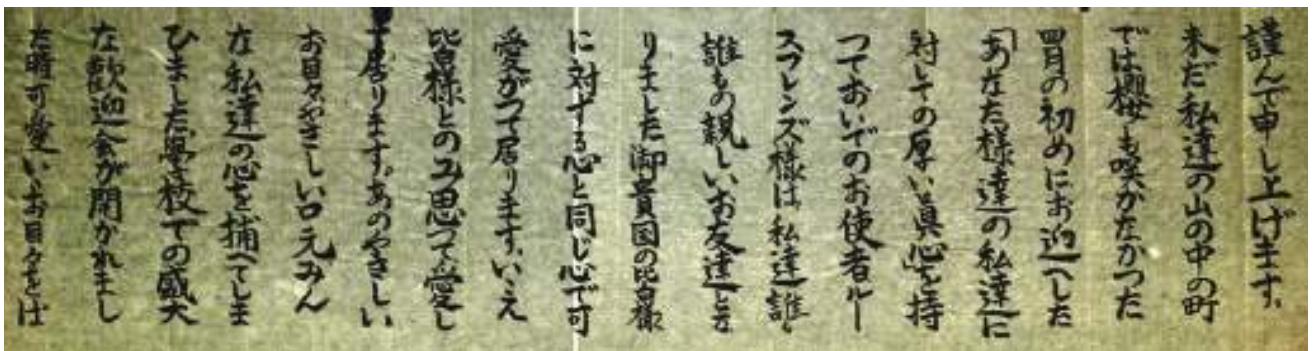 謹んで申し上げます、
未だ私達の山の中の町
では櫻も咲かなかつた
四月の初めにお迎へした
「あなた様達の私達に
対しての厚い眞心を持
つておいでのお使者ルー
スフレンズ様は、私達誰も
誰もの親しいお友達とな
りました御貴国の皆様
に対する心と同じ心で可
愛がつて居ります、いゝえ
皆様とのみ思つて愛し
て居ります。あのやさしい
お目々やさしい口元みん
な私達の心を捕へてしま
ひました學校での盛大
な歡迎会が開かれまし
た時可愛いゝお目々をは